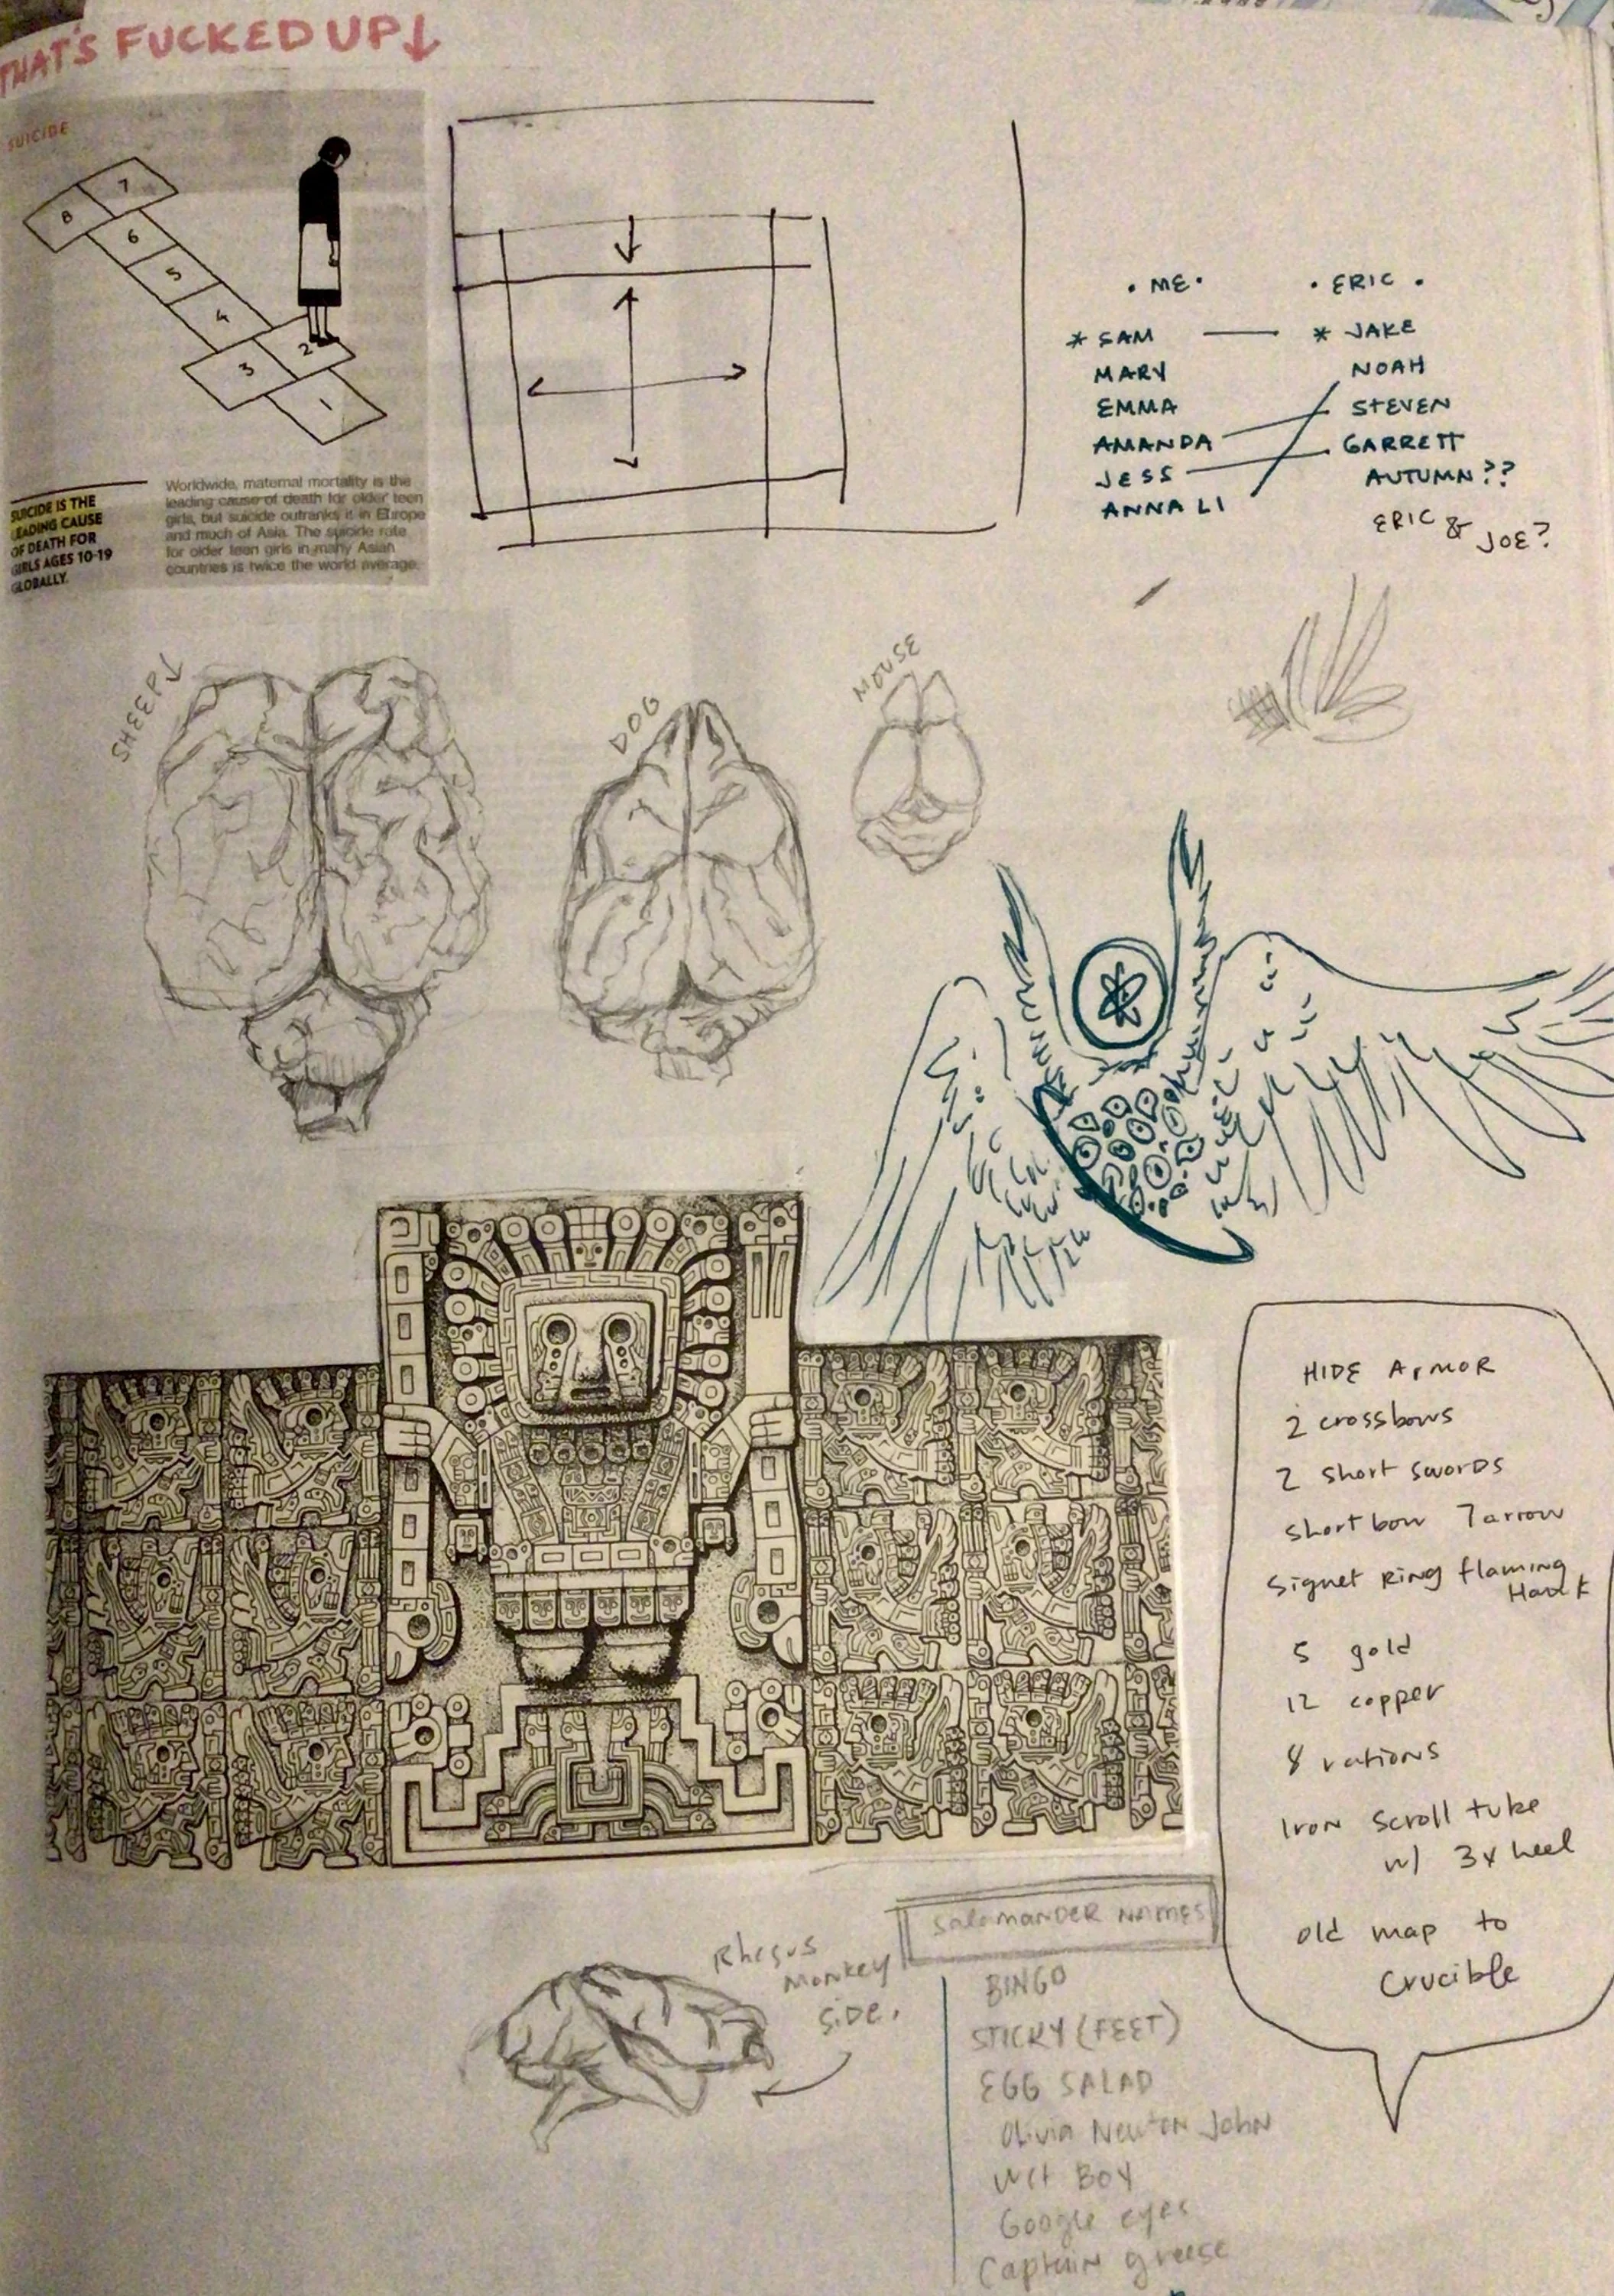 THAT'S FUCKED UP↓
SUICIDE
7
8
6
5
4
2
3
1
SUICIDE IS THE
LEADING CAUSE
OF DEATH FOR
GIRLS AGES 10-19
GLOBALLY.
Worldwide, maternal mortality is the
leading cause of death for older teen
girls, but suicide outranks it in Europe
and much of Asia. The suicide rate
for older teen girls in many Asian
countries is twice the world average.
• ME •
* SAM
MARY
EMMA
AMANDA
JESS
ANNA LI
• ERIC •
* JAKE
NOAH
STEVEN
GARRETT
AUTUMN??
ERIC & JOE?
SHEEP↓
DOG
MOUSE
HIDE ARMOR
2 crossbows
2 short swords
short bow 7 arrow
Signet Ring flaming
Hawk
5 gold
12 copper
8 rations
Iron scroll tube
w/ 3x heel
old map to
Crucible
Rhesus
Monkey
SiDe.
Salamander Names
BINGO
STICKY (FEET)
EGG SALAD
Olivia Newton John
Wet BOY
Google eyes
Captain grease